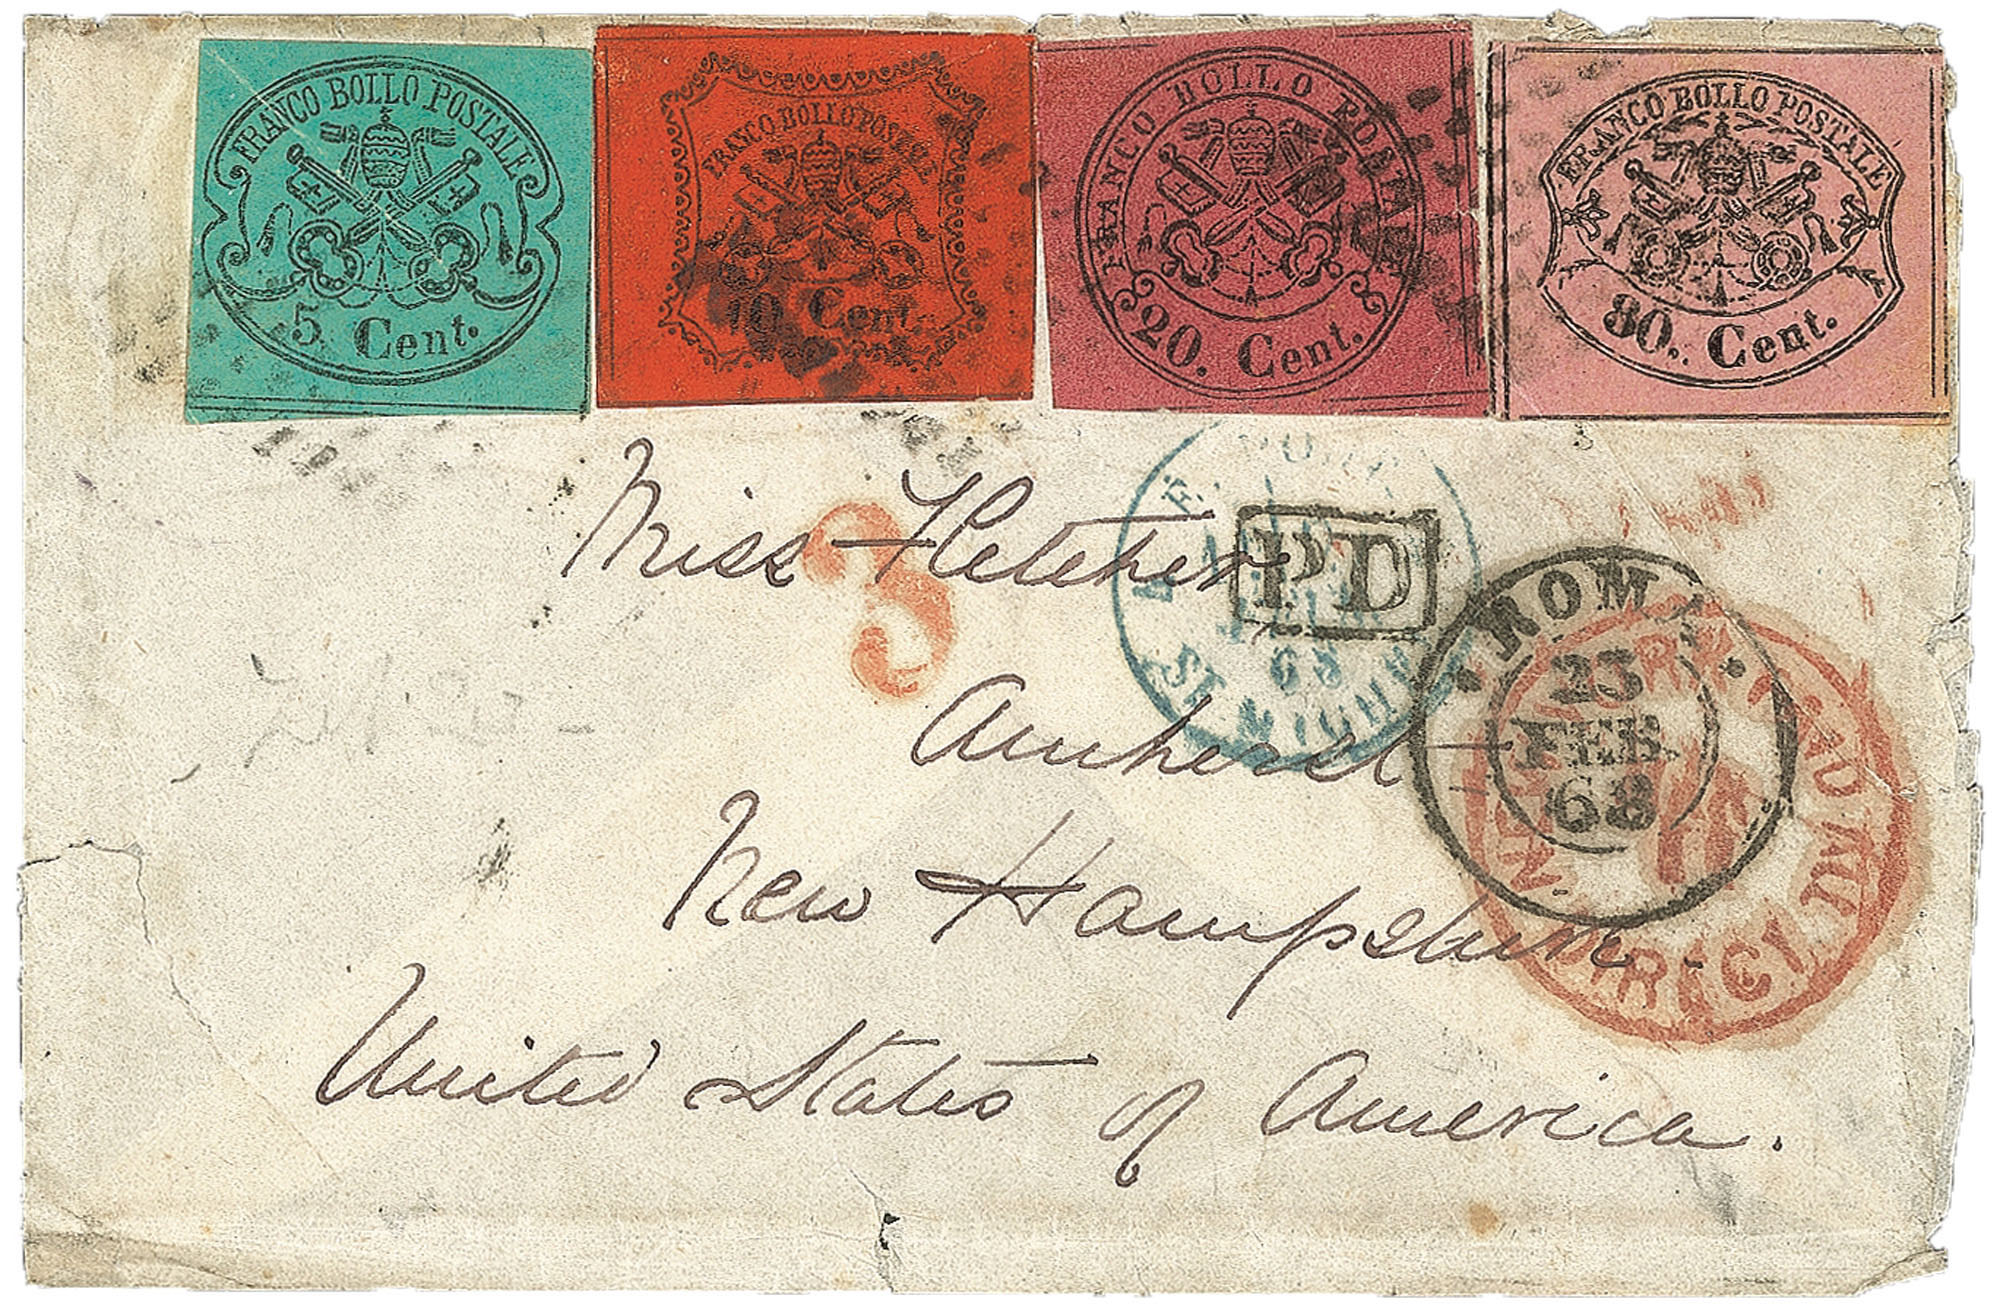 FRANCO BOLLO POSTALE
5 Cent.
FRANCO BOLLO POSTALE
10 Cent.
FRANCO BOLLO POSTALE
20. Cent.
FRANCO BOLLO POSTALE
80.. Cent.
Miss Fletcher
3
PD
68
ROMA
23
FEB
68
Amherst
New Hampshire.
DIRECT
United States of America.